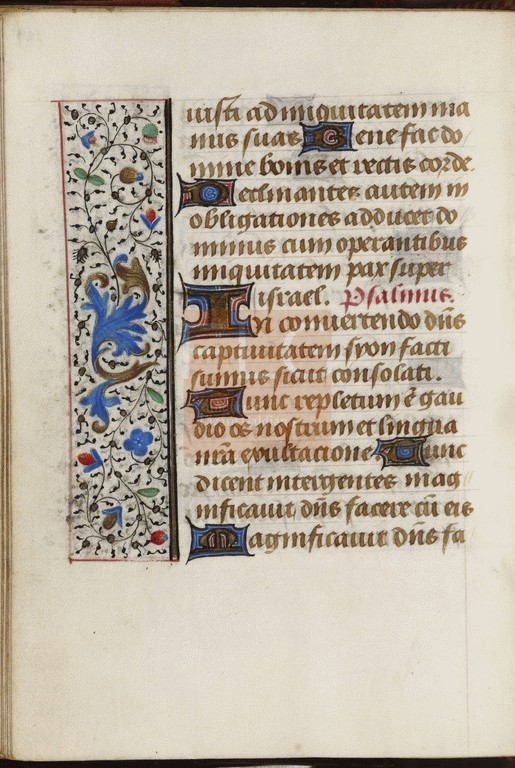 iusti ad iniquitatem ma
nus suas Bene fac do
mine bonis et rectis corde
Declinantes autem in
obligationes adducet do
minus cum operantibus
iniquitatem pax super
israel. Psalmus.
In convertendo dñs
captivitatem syon facti
sumus sicut consolati.
Tunc repletum ē gau
dio os nostrum et lingua
nr̃a exultatione Tunc
dicent inter gentes mag
nificavit dñs facere cū eis
Magnificavit dñs fa